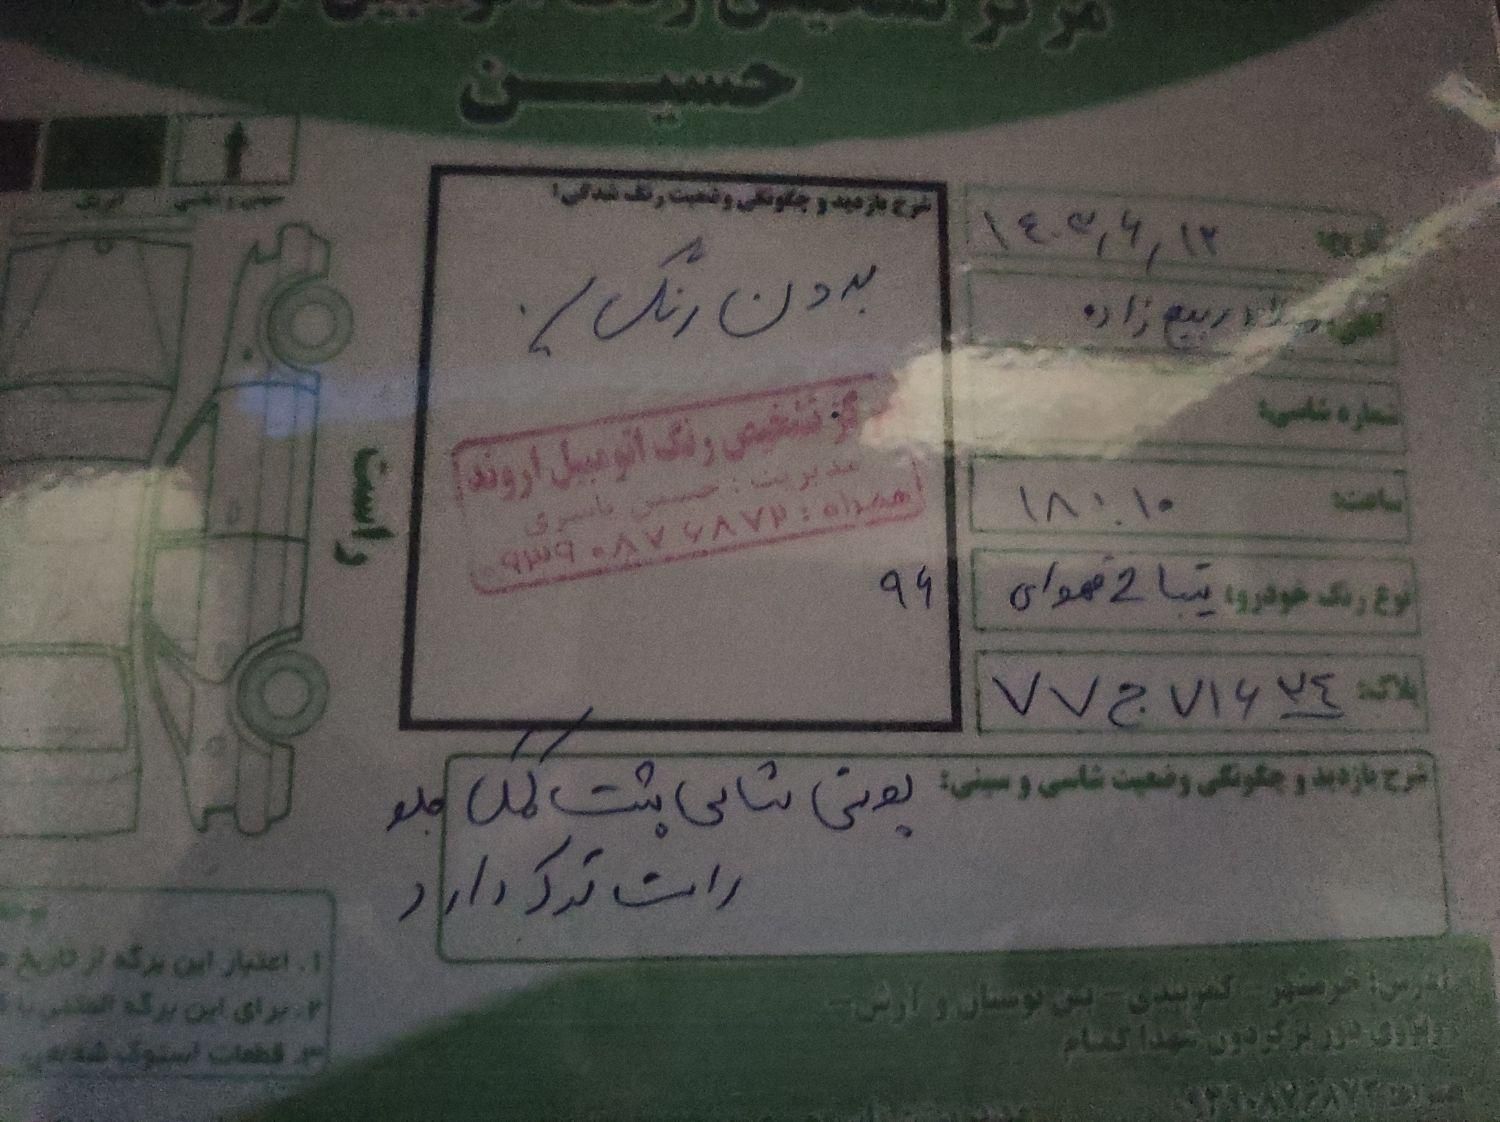 مرکز تشخیص رنگ اتومبیل اروند
حسین
شرح بازدید و چگونگی وضعیت رنگ شدگی:
بدون رنگ
مرکز تشخیص رنگ اتومبیل اروند
مدیریت: حسین یاسری
همراه: ۰۹۳۹۰۸۷۶۸۷۲
۹۶
تاریخ: ۱۴۰۳٫۶٫۱۲
ربیع زاده
شماره شاسی:
ساعت: ۱۸:۱۰
نوع رنگ خودرو: تیبا 2 قهوه‌ای
پلاک: ۷۷ ج ۷۱۶ ۲۴
شرح بازدید و چگونگی وضعیت شاسی و سینی: پونی شاسی پشت کمک جلو
راست ترک دارد
راست
۱. اعتبار این برگه از تاریخ
۲. برای این برگه المثنی
۳. قطعات استوک شده
آدرس: خرمشهر - کمربندی - بین بوستان و آرش -
روبروی دور برگردون شهدا گمنام